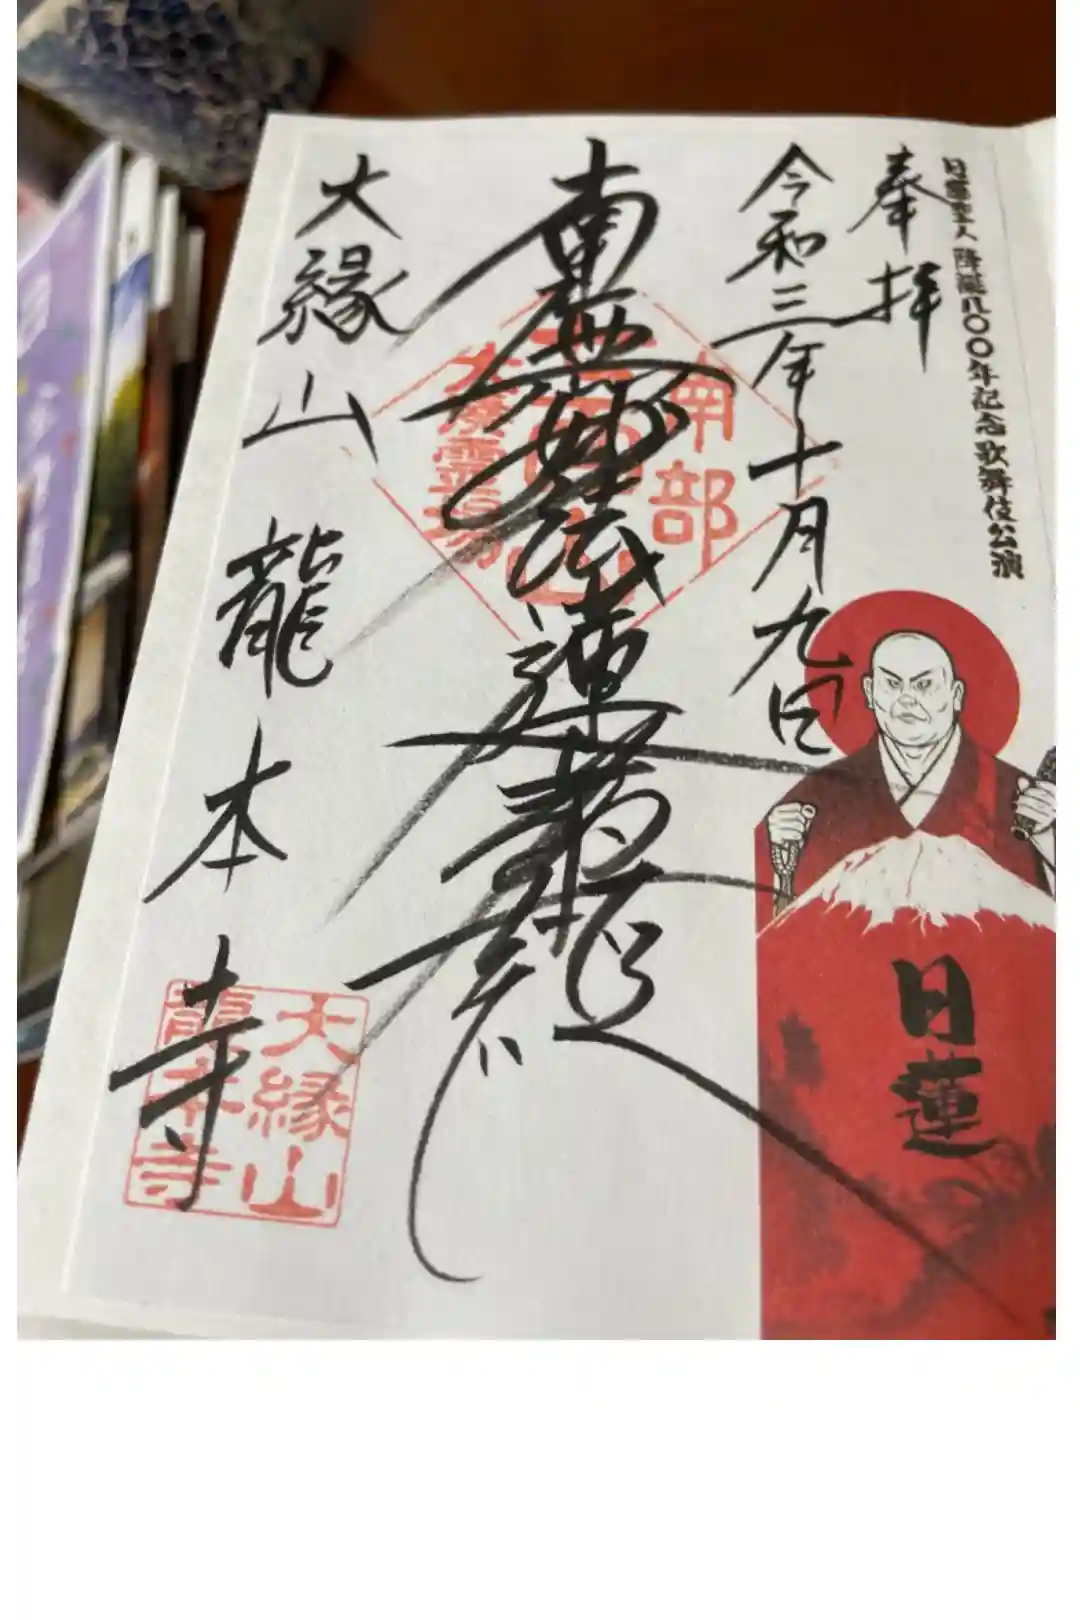 日蓮聖人 降誕八〇〇年記念歌舞伎公演
奉拝
令和三年十月九日
南無妙法蓮華経
大縁山 龍本寺
南部
霊場
大縁山
龍本寺
日蓮